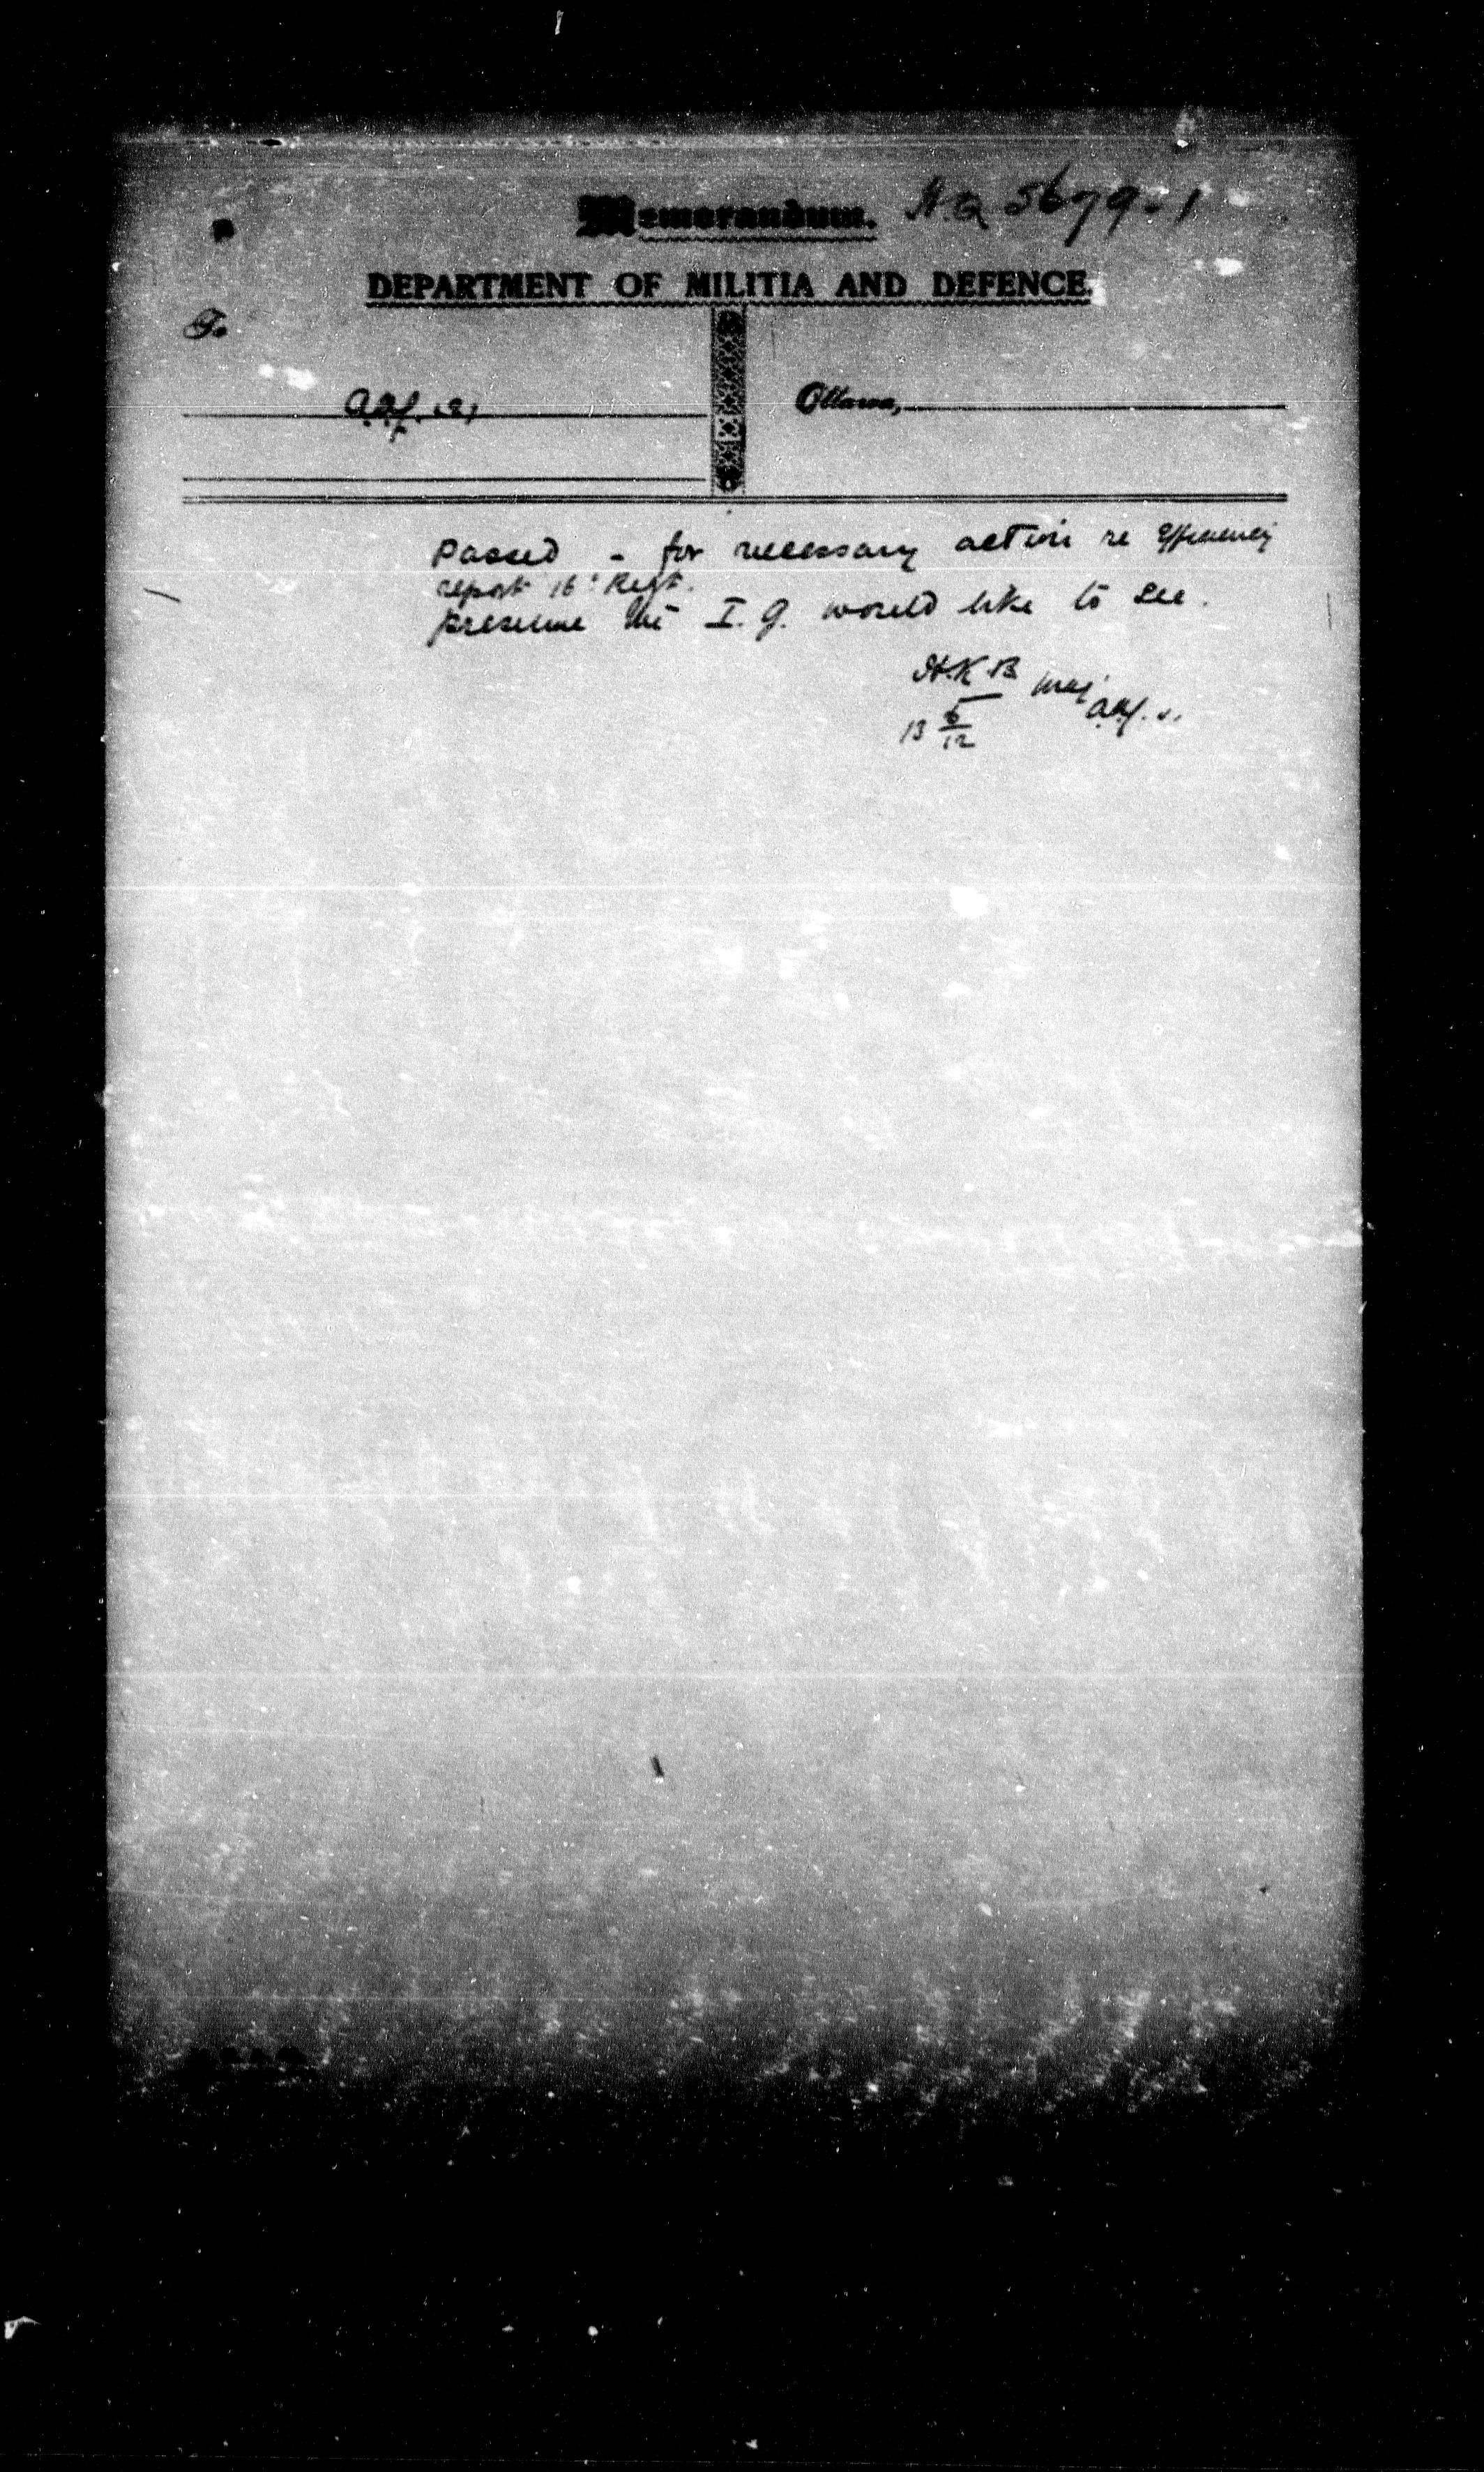 Memorandum. H.Q 5679-1
DEPARTMENT OF MILITIA AND DEFENCE.
To
Ottawa,
Passed - for necessary action re Efficiency
report 16th Regt.
presume the I.G. would like to see.
H.K.B Maj
13 6/12